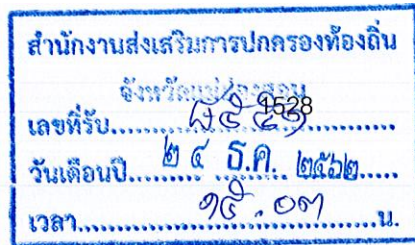 สำนักงานส่งเสริมการปกครองท้องถิ่น
จังหวัดแม่ฮ่องสอน
1528
เลขที่รับ
วันเดือนปี ๒๔ ธ.ค. ๒๕๖๒
เวลา ๑๕.๐๓ น.